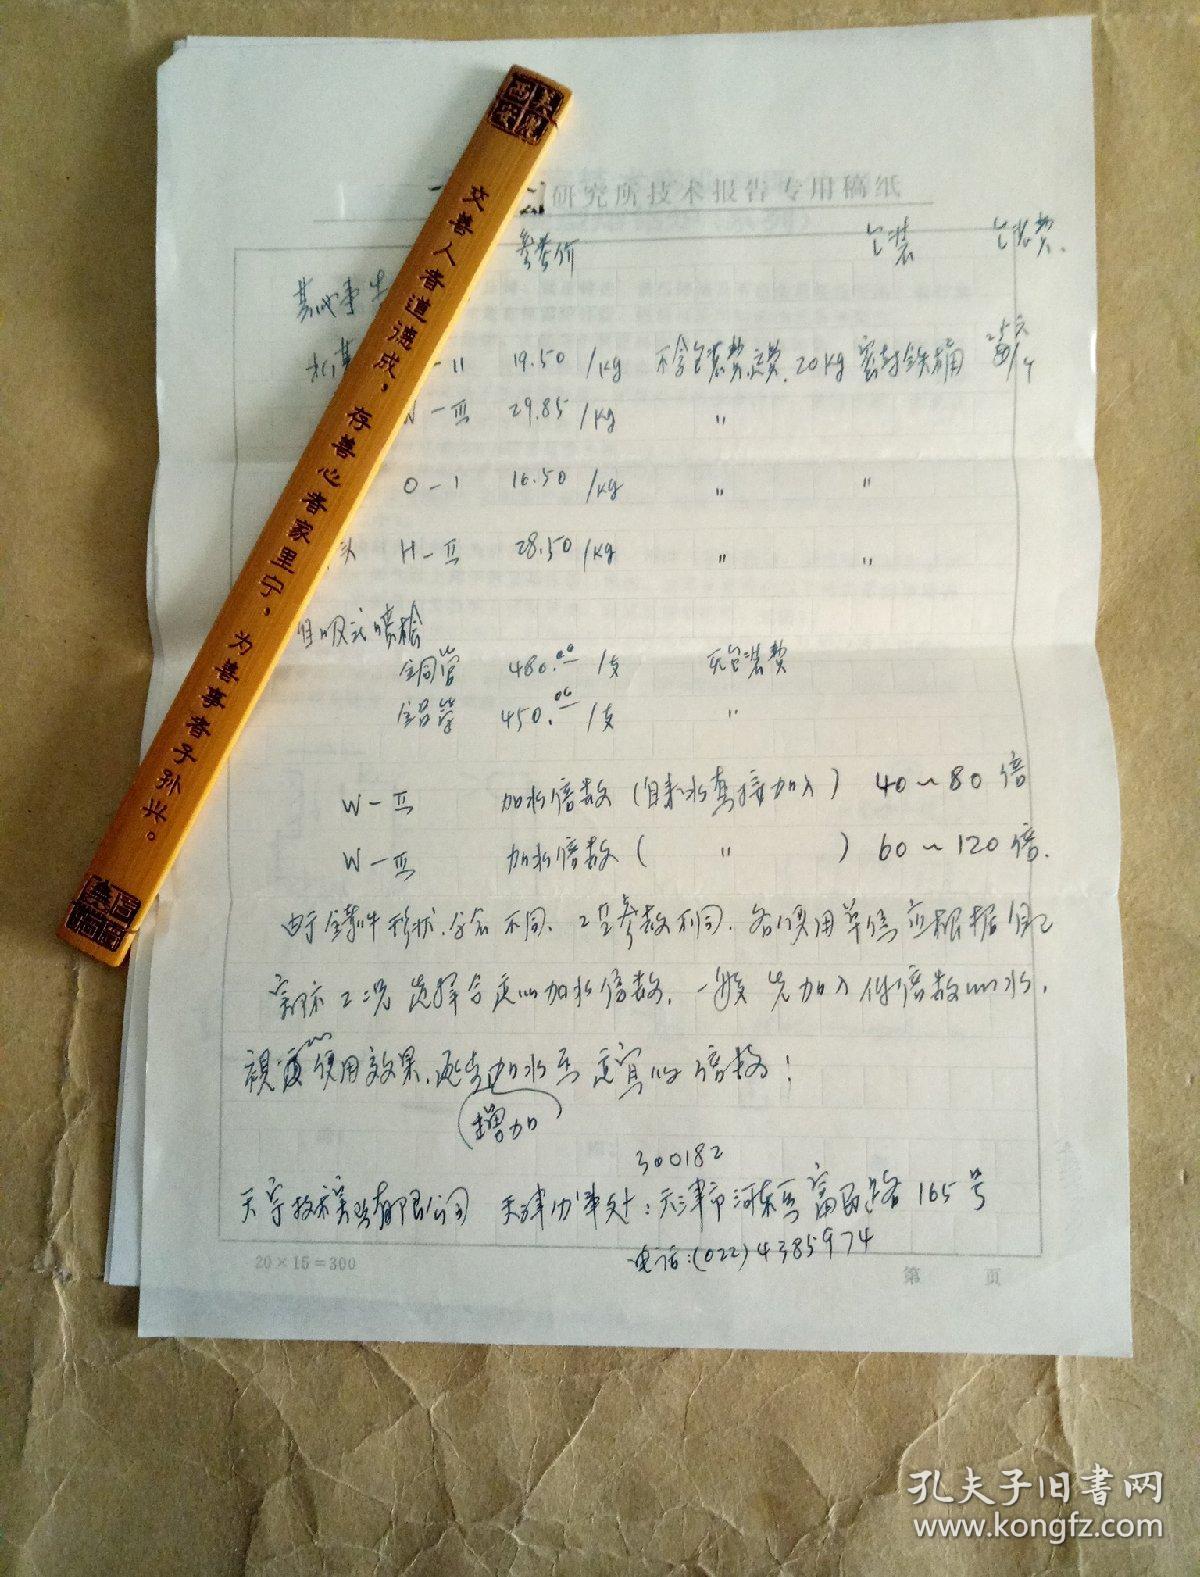 研究所技术报告专用稿纸
参考价 包装 包装费.
-II 19.50 /kg 不含包装费,运费. 20kg 密封铁桶 25元/个
W-III 29.85 /kg "
O-1 16.50 /kg " "
H-II 28.50 /kg " "
自吸式喷枪
全铜管 480.00 /支 无包装费
全铝管 450.00 /支 "
W-II 加水倍数(自来水直接加入) 40~80倍
W-III 加水倍数( " ) 60~120倍.
由于铸件形状、合金不同、工艺参数不同、各使用单位应根据自己
实际工况选择合适的加水倍数,一般先加入低倍数的水,
视使用效果,逐步加水至适宜的倍数!
增加
300182
天宇技术实业有限公司 天津办事处:天津市河东区富民路165号
电话:(022)4385974
20×15=300
第 页
交善人者道德成,存善心者家里宁,为善事者子孙兴。
孔夫子旧书网
www.kongfz.com